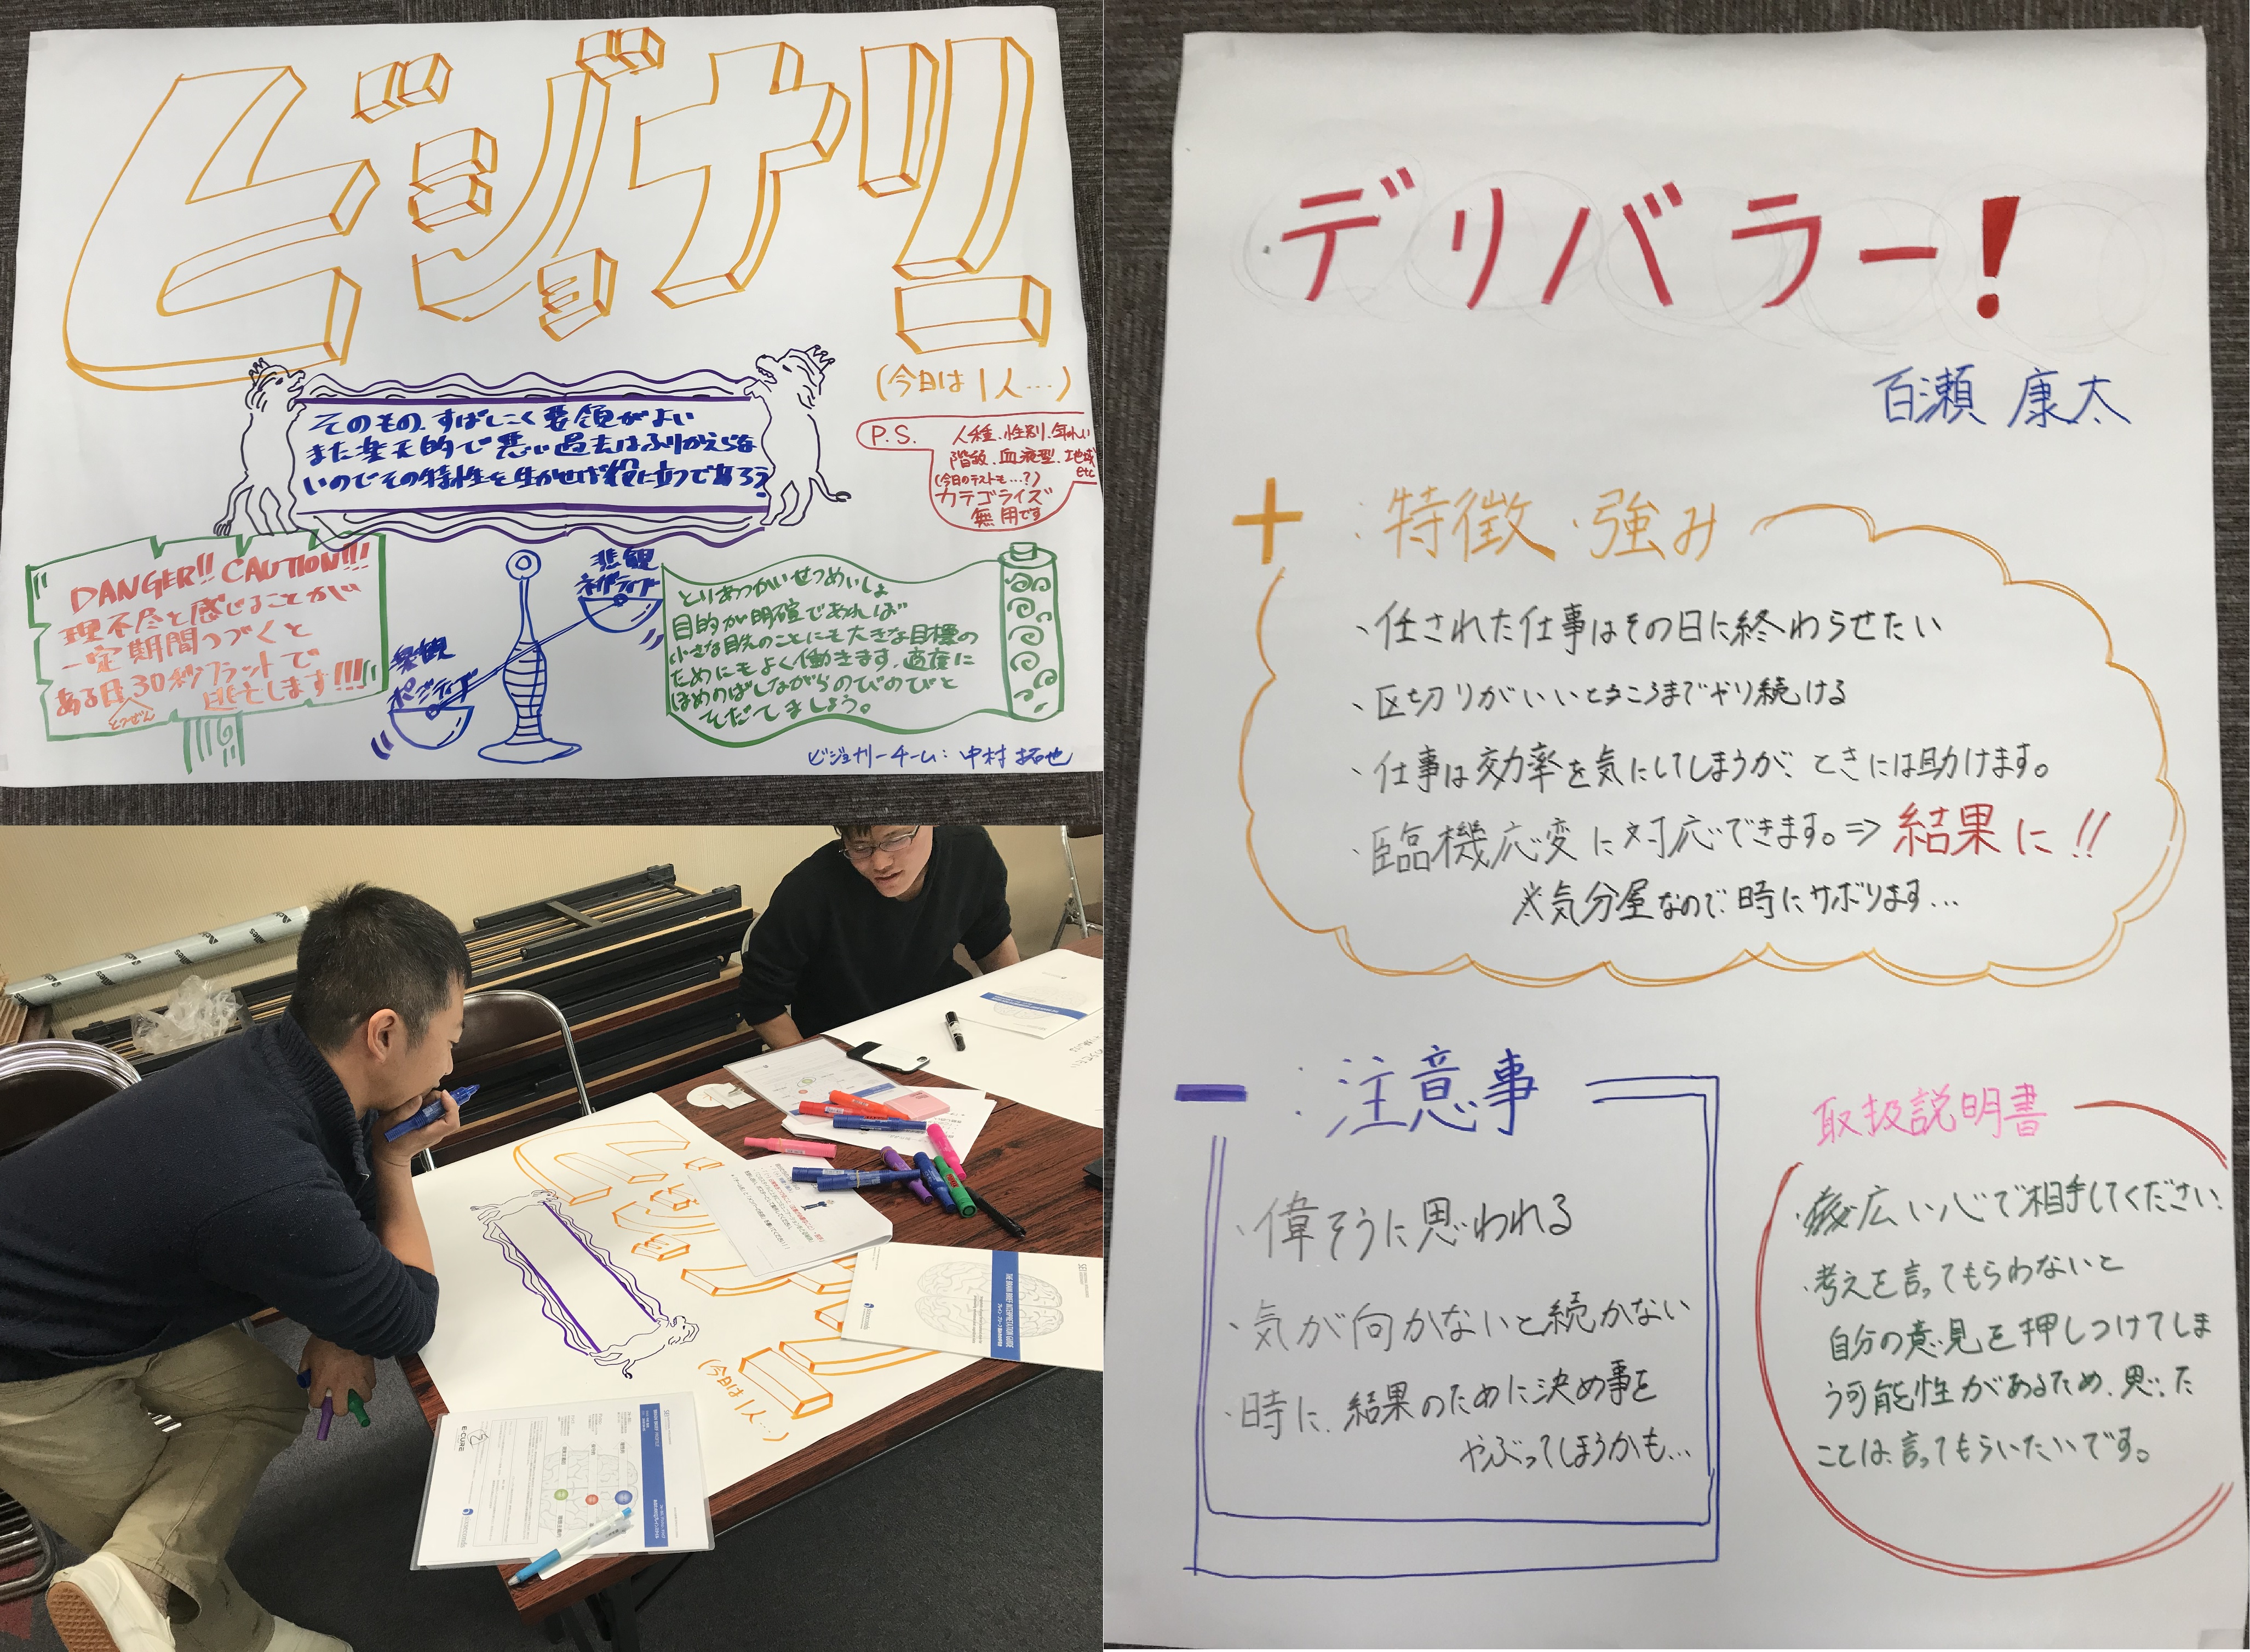 ビジョナリー
(今日は1人…)
そのもの、すばしこく要領がよい
また楽天的で悪い過去はふりかえらな
いのでその特性を生かせば役に立つであろう。
P.S.
人種、性別、年れい
階級、血液型、地域
etc
(今日のテストも…?)
カテゴライズ
無用です
DANGER!! CAUTION!!!
理不尽と感じることが
一定期間つづくと
ある日、30秒フラットで
とつぜん
逃亡します!!!
悲観
ネガティブ
楽観
ポジティブ
とりあつかいせつめいしょ
目的が明確であれば
小さな目先のことにも大きな目標の
ためにもよく働きます。適度に
ほめのばしながらのびのびと
そだてましょう。
ビジョナリーチーム:中村拓也
デリバラー!
百瀬 康太
+:特徴・強み
、任された仕事はその日に終わらせたい
、区切りがいいところまでやり続ける
、仕事は効率を気にしてしまうが、ときには助けます。
、臨機応変に対応できます。⇒結果に!!
※気分屋なので時にサボります…
-:注意事
・偉そうに思われる
・気が向かないと続かない
・時に、結果のために決め事を
やぶってしまうかも…
取扱説明書
・広い心で相手してください。
・考えを言ってもらわないと
自分の意見を押しつけてしま
う可能性があるため、思った
ことは言ってもらいたいです。
ビジョナリー
(今日は1人…)
THE BRAIN BRIEF INTERPRETATION GUIDE
E-CURE